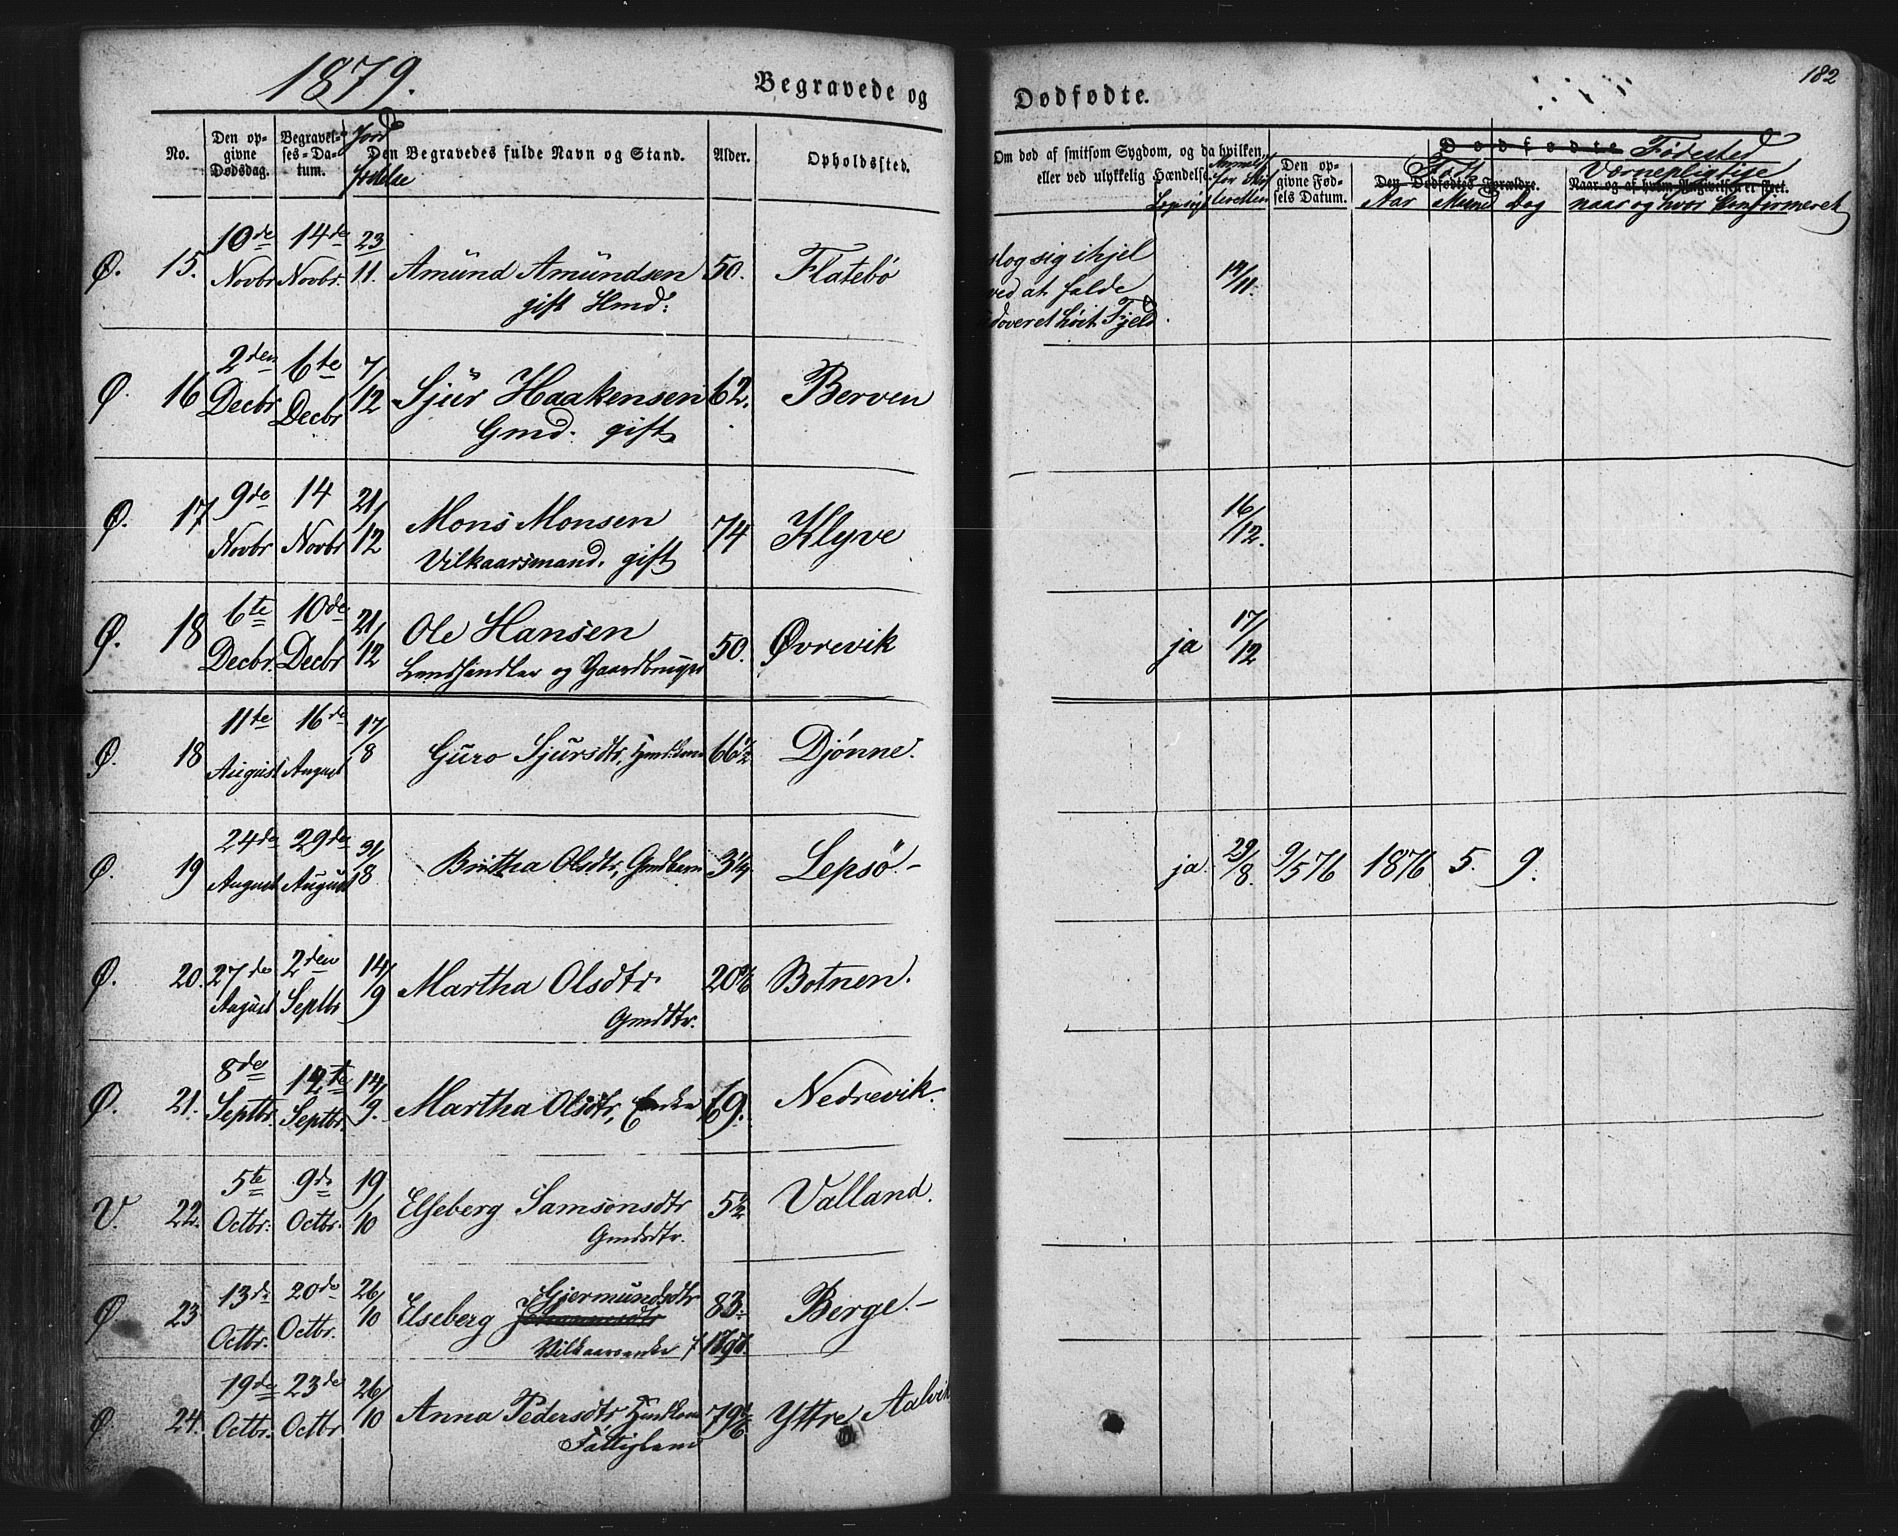 1879.
Begravede og
No.
Den opgivne Dødsdag.
Begravelses-Datum.
Jord
Den Begravedes fulde Navn og Stand.
Alder.
Opholdssted.
Ø. 15. 10de Novbr 14de Novbr. 23/11. Amünd Amündsen 50. Flatebø
gift Hmd:
Ø. 16 2den Decbr 6te Decbr 7/12 Sjür Haakensen 62. Berven
Gmd. gift
Ø. 17 9de Novbr 14 Novbr 21/12 Mons Monsen 74 Klyve
Vilkaarsmand. gift
Ø. 18 6te Decbr. 10de Decbr 21/12 Ole Hansen 50. Øvrevik
Landhandler og Gaardbruger
Ø. 18 11te August 16de August 17/8 Guro Sjursdtr, 66 1/2 Djønne.
Ø. 19 24de August 29de August 31/8 Brittha Olsdtr, Gmdbarn 3 1/4 Lepsö-
Ø. 20. 27de August 2den Septbr 14/9 Martha Olsdtr Botnen.
Gmddtr.
Ø. 21. 8de Septbr. 12te Septbr. 14/9. Martha Olsdtr, Enke 69. Nedrevik.
V. 22. 5te Octbr. 9de Octbr. 19/10 Elseberg Samsonsdtr Valland.
Gmdsdtr.
Ø. 23 13de Octbr. 20de Octbr. 26/10 Elseberg Gjermundsdtr 83. Berge.-
Vilkaarsenke
Ø. 24. 19de Octbr. 23de Octbr 26/10 Anna Pedersdtr Yttre Aalvik
Fattiglem
182
Dødfødte.
Om død af smitsom Sygdom, og da hvilken,
eller ved ulykkelig Hændelse.
Den opgivne Fødsels Datum.
Dødfødte Fødested
Den Dødfødtes Forældre.
Født
Aar Maaned Dag
Værnepligtige
Naar og af hvem Angivelsen er skeet.
naar og hvor konfirmeret
slog sig ihjel
ved at falde
udover et høit Fjeld.
14/11.
16/12.
ja 17/12
ja. 29/8. 9/5 76 1876 5. 9.